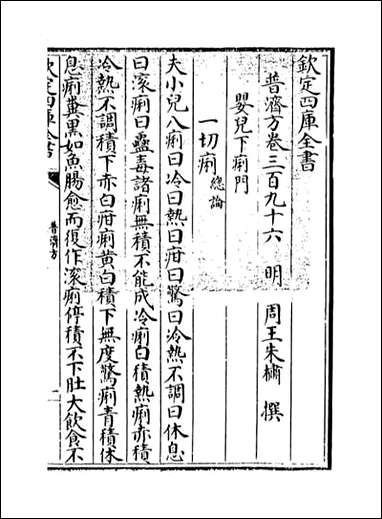 欽定四庫全書
普濟方卷三百九十六 明 周王朱橚 撰
嬰兒下痢門
一切痢總論
夫小兒八痢曰冷曰熱曰疳曰驚曰冷熱不調曰休息
曰滚痢曰蠱毒諸痢無積不能成冷痢白積熱痢赤積
冷熱不調積下赤白疳痢黄白積下無度驚痢青積休
息痢糞黒如魚腸愈而復作滚痢停積不下肚大飲食不
欽定四庫全書
普濟方